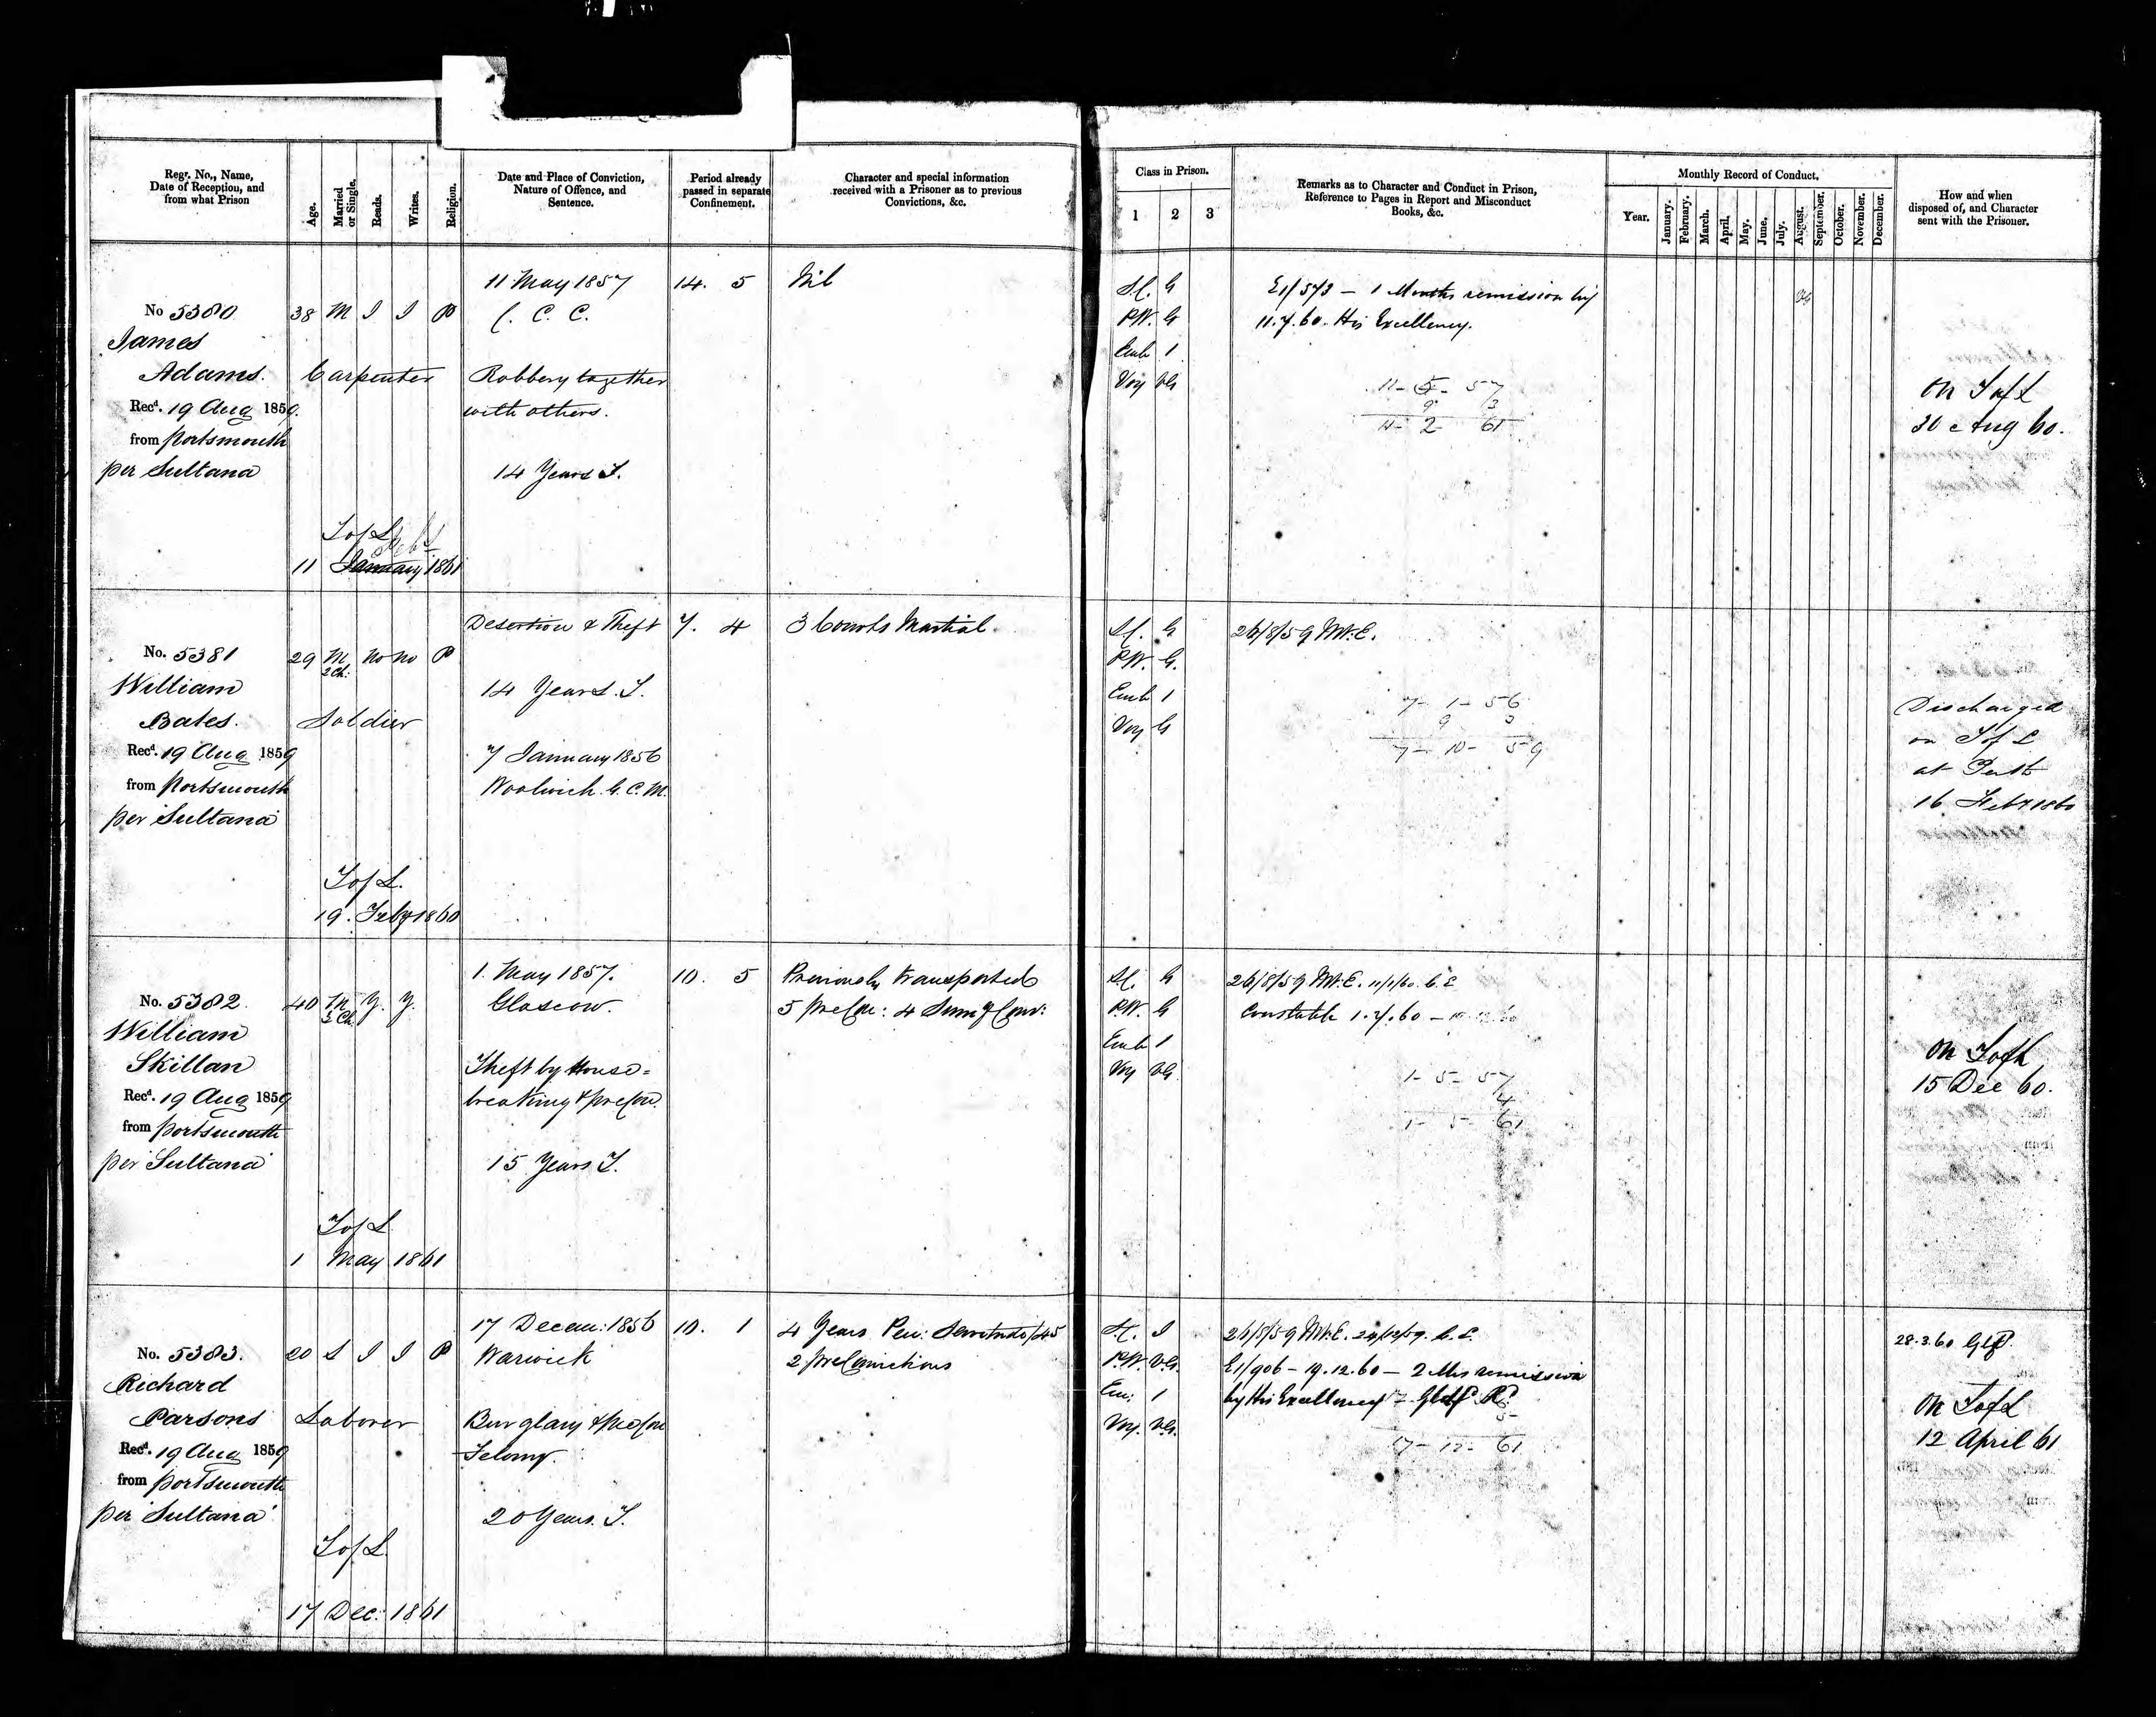 Regr. No., Name,
Date of Reception, and
from what Prison
Age.
Married
or Single.
Reads.
Writes.
Religion.
Date and Place of Conviction,
Nature of Offence, and
Sentence.
Period already
passed in separate
Confinement.
Character and special information
received with a Prisoner as to previous
Convictions, &c.
Class in Prison.
1 2 3
Remarks as to Character and Conduct in Prison,
Reference to Pages in Report and Misconduct
Books, &c.
Monthly Record of Conduct.
Year.
January.
February.
March.
April.
May.
June.
July.
August.
September.
October.
November.
December.
How and when
disposed of, and Character
sent with the Prisoner.
No 5380
James
Adams.
Recd. 19 Aug 1859.
from Portsmouth
per Sultana
38 M I I P
Carpenter
T of L
11 January 1861
11 May 1857
C. C. C.
Robbery together
with others.
14 Years T.
14. 5
Nil
G
P.W. G
Emb 1
Voy VG
E1/573 - 1 Months remission by
11.7.60. His Excellency.
11 - 5 - 57
9 3
11 - 2 61
VG
On T of L
30 Aug 60.
No. 5381
William
Bates.
Recd. 19 Aug 1859
from Portsmouth
per Sultana
29 M No No P
2 Ch:
Soldier
T of L.
19. Feby 1860
Desertion & Theft
14 Years. T.
7 January 1856
Woolwich G. C. M.
7. 4
3 Courts Martial.
G
P.W. G.
Emb 1
Voy G
26/8/59 Mt. E.
7 - 1 - 56
9 3
7 - 10 - 59
Discharged
on T of L
at Perth
16 Feby 1860
No. 5382
William
Skillan
Recd. 19 Aug 1859
from Portsmouth
per Sultana
40 M Y. Y.
3 Ch
T of L
1 May 1861
1. May 1857.
Glascow.
Theft by House=
breaking & pre Con.
15 Years T.
10. 5
Previously transported
5 pre Con: 4 Summy Conv:
G
P.W. G
Emb 1
Voy VG
26/8/59 Mt. E. 11/1/60. C. E
Constable 1.7.60 -
1 - 5 - 57
4
1 - 5 - 61
On T of L
15 Dec 60.
No. 5383.
Richard
Parsons
Recd. 19 Aug 1859
from Portsmouth
per Sultana
20 S I I P
Laborer
T of L
17 Dec: 1861
17 Decem: 1856
Warwick
Burglary & pre Con
Felony.
20 Years. T.
10. 1
4 Years Pen: Servitude
2 pre Convictions
I
P.W. V.G.
Em: 1
Voy. V.G.
26/8/59 Mt. E. 24/12/59. C. E.
E1/906 - 19.12.60 - 2 Mos remission
by His Excellency -
5
17 - 12 - 61
28.3.60
On T of L
12 April 61